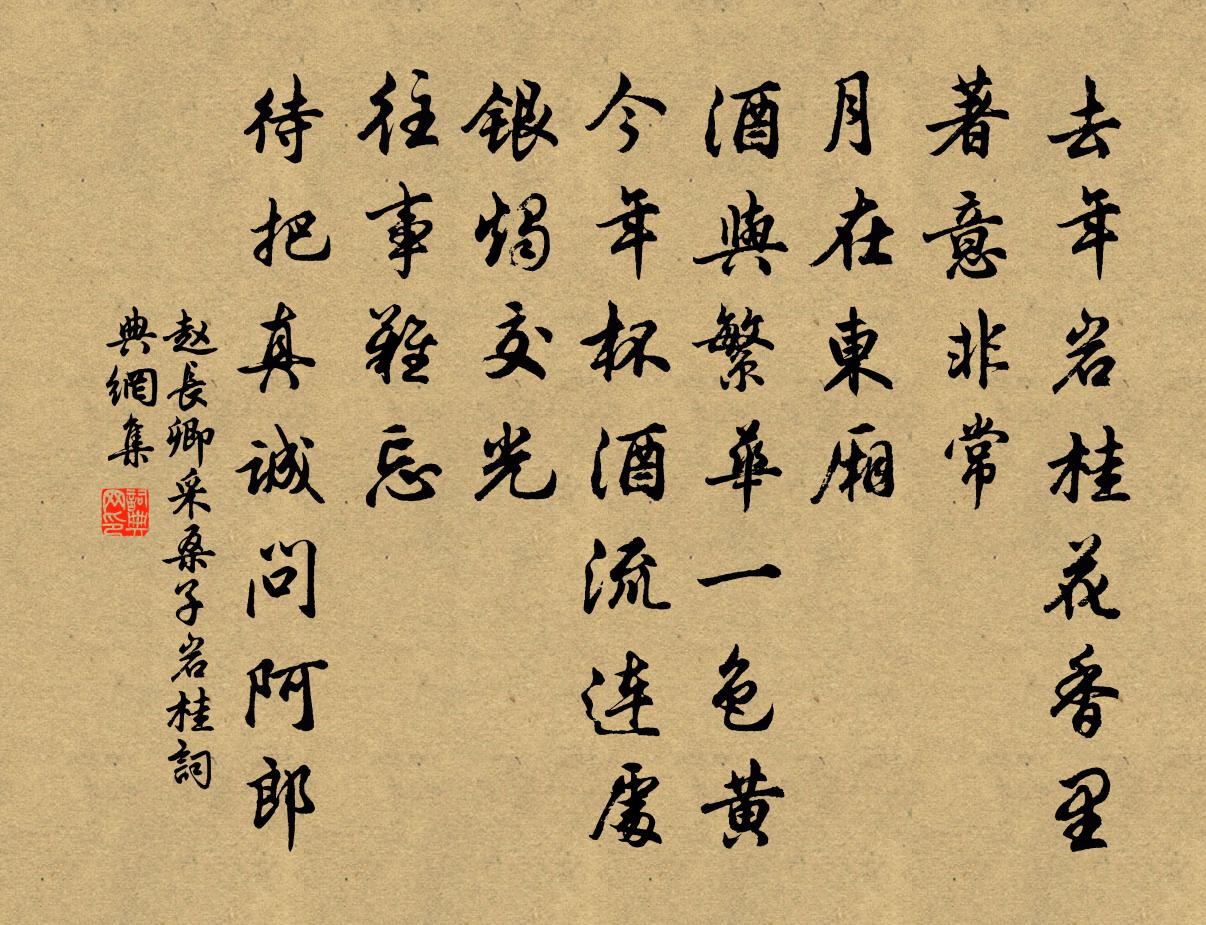 去年岩桂花香里
著意非常
月在東廂
酒與繁華一色黄
今年杯酒流連處
銀燭交光
往事難忘
待把真誠問阿郎
赵長卿采桑子岩桂詞
典網集
詞典网印